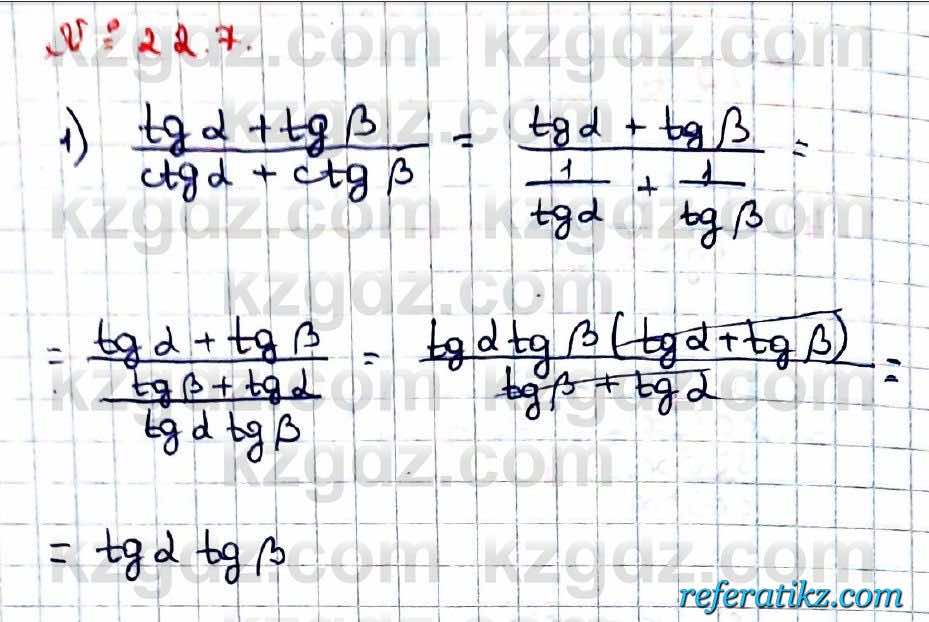 № 22.7.
1) (tg α + tg β)/(ctg α + ctg β) = (tg α + tg β)/(1/tg α + 1/tg β) =
= (tg α + tg β)/((tg β + tg α)/(tg α tg β)) = (tg α tg β (tg α + tg β))/(tg β + tg α) =
= tg α tg β
kzgdz.com
referatikz.com